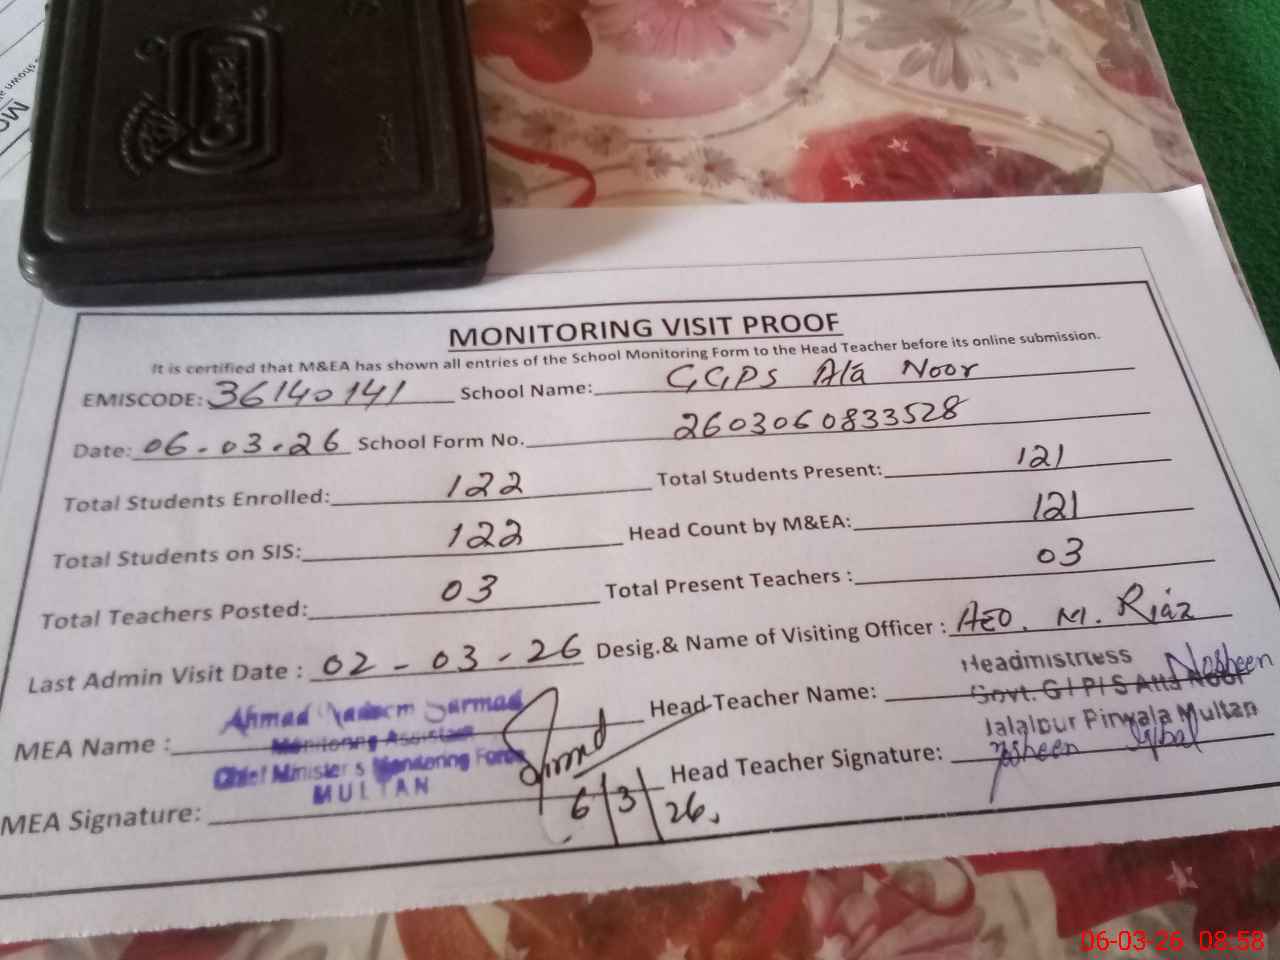 Crystal
MONITORING VISIT PROOF
It is certified that M&EA has shown all entries of the School Monitoring Form to the Head Teacher before its online submission.
EMISCODE: 36140141 School Name: GGPS Ala Noor
Date: 06-03-26 School Form No. 2603060833528
Total Students Enrolled: 122 Total Students Present: 121
Total Students on SIS: 122 Head Count by M&EA: 121
Total Teachers Posted: 03 Total Present Teachers : 03
Last Admin Visit Date : 02-03-26 Desig.& Name of Visiting Officer : AEO. M. Riaz
MEA Name : Ahmad Sarmad Head Teacher Name: Headmistress Nosheen
Monitoring Assistant Govt. G/P/S Noor
Chief Minister's Monitoring Force Jalalpur Pirwala Multan
MULTAN
MEA Signature: 6/3/26. Head Teacher Signature: Iqbal
06-03-26 08:58